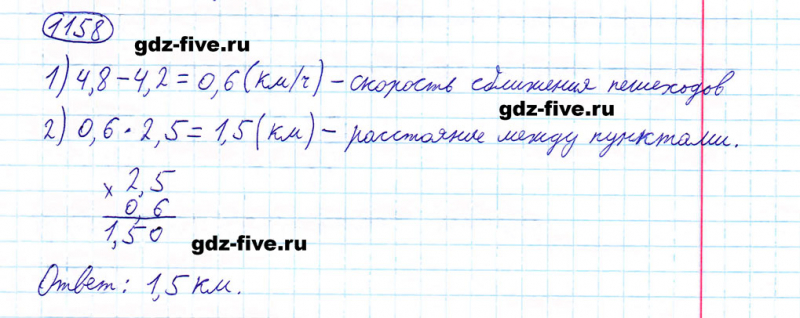 1158
gdz-five.ru
1) 4,8 – 4,2 = 0,6 (км/ч) – скорость сближения пешеходов
gdz-five.ru
2) 0,6 · 2,5 = 1,5 (км) – расстояние между пунктами.
× 2,5
0,6
1,50
gdz-five.ru
Ответ: 1,5 км.